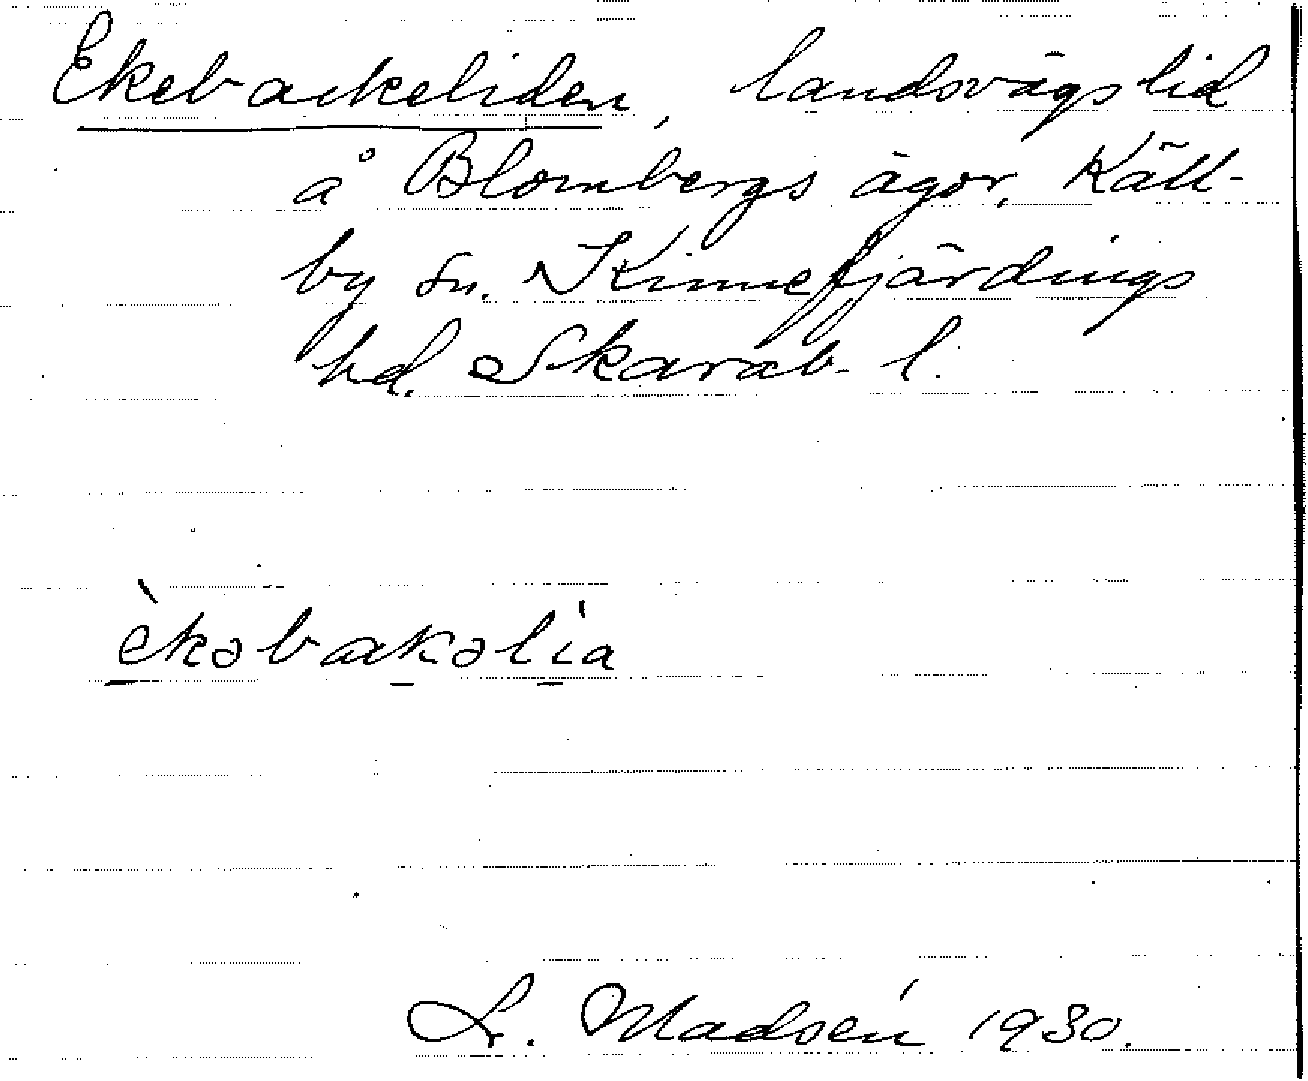 Ekebackeliden, landsvägslid
å Blombergs ägor, Käll-
by sn. Kinnefjärdings
hd. Skarab. l.
èkəbakəlia
L. Madsén 1930.